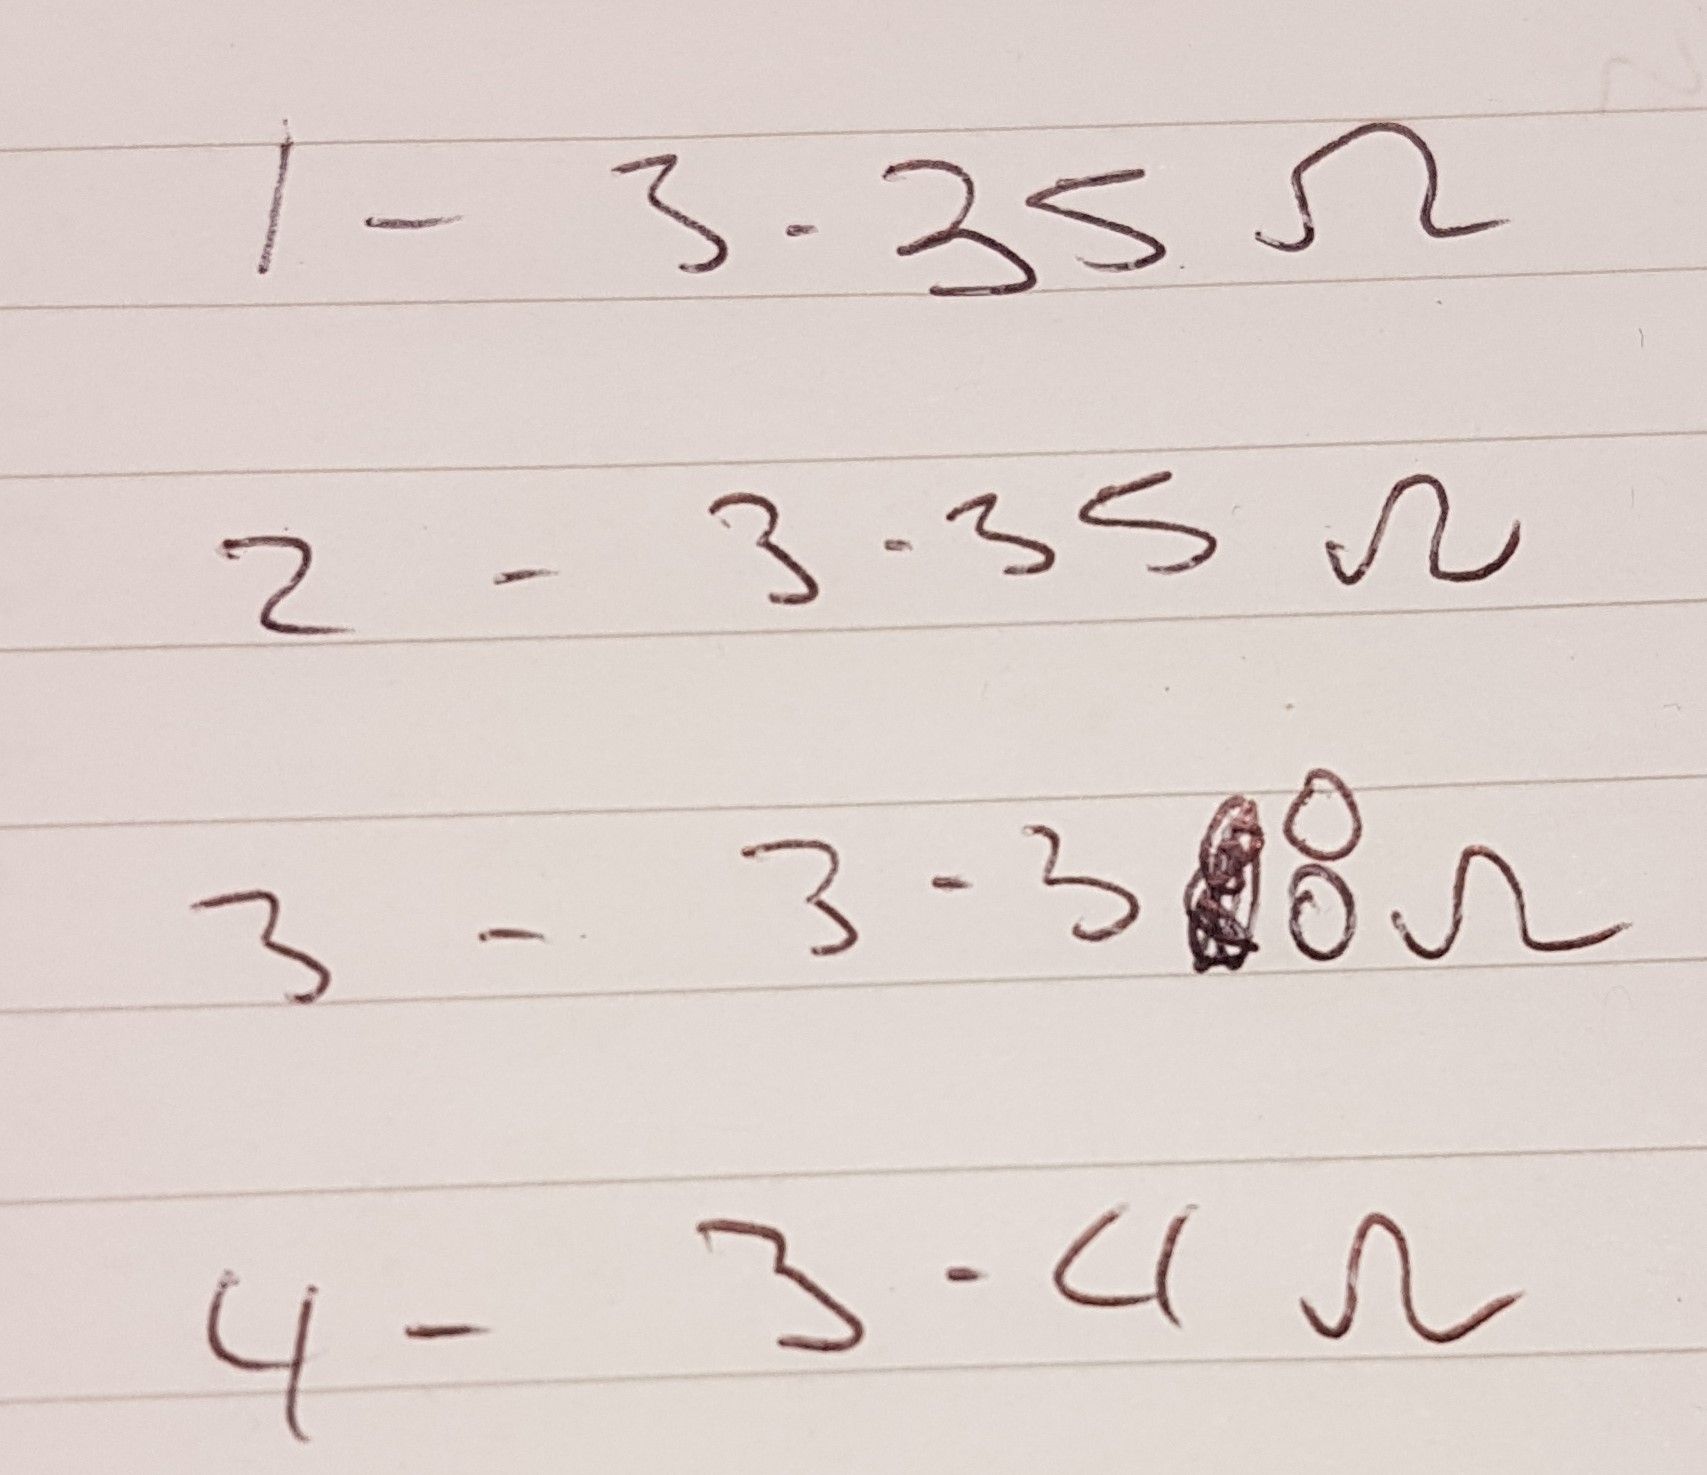 1 - 3.35 Ω
2 - 3.35 Ω
3 - 3.38 Ω
4 - 3.4 Ω